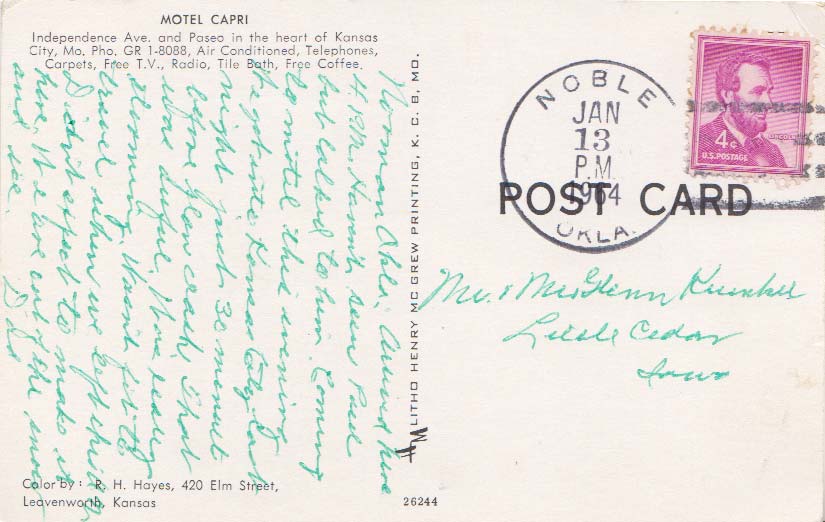 MOTEL CAPRI
Independence Ave. and Paseo in the heart of Kansas
City, Mo. Pho. GR 1-8088, Air Conditioned, Telephones,
Carpets, Free T.V., Radio, Tile Bath, Free Coffee.
Norman Okla. Arrived here
4:15 P.M. Haven't seen Paul
but called to him. Coming
to motel this evening
Kansas City last
night just 30 minute
before plane crash. That
was awful. It was really
storming. Wasn't fit to
travel when we left this
Didn't expect to make it
here. We are out of the snow
and ice. Dad
Color by: R. H. Hayes, 420 Elm Street,
Leavenworth, Kansas
26244
LITHO HENRY MC GREW PRINTING, K. C. 8, MO.
HM
NOBLE
JAN
13
P.M.
1964
OKLA.
POST CARD
LINCOLN
4¢
U.S. POSTAGE
Mr. & Mrs Glenn
Little Cedar
Iowa